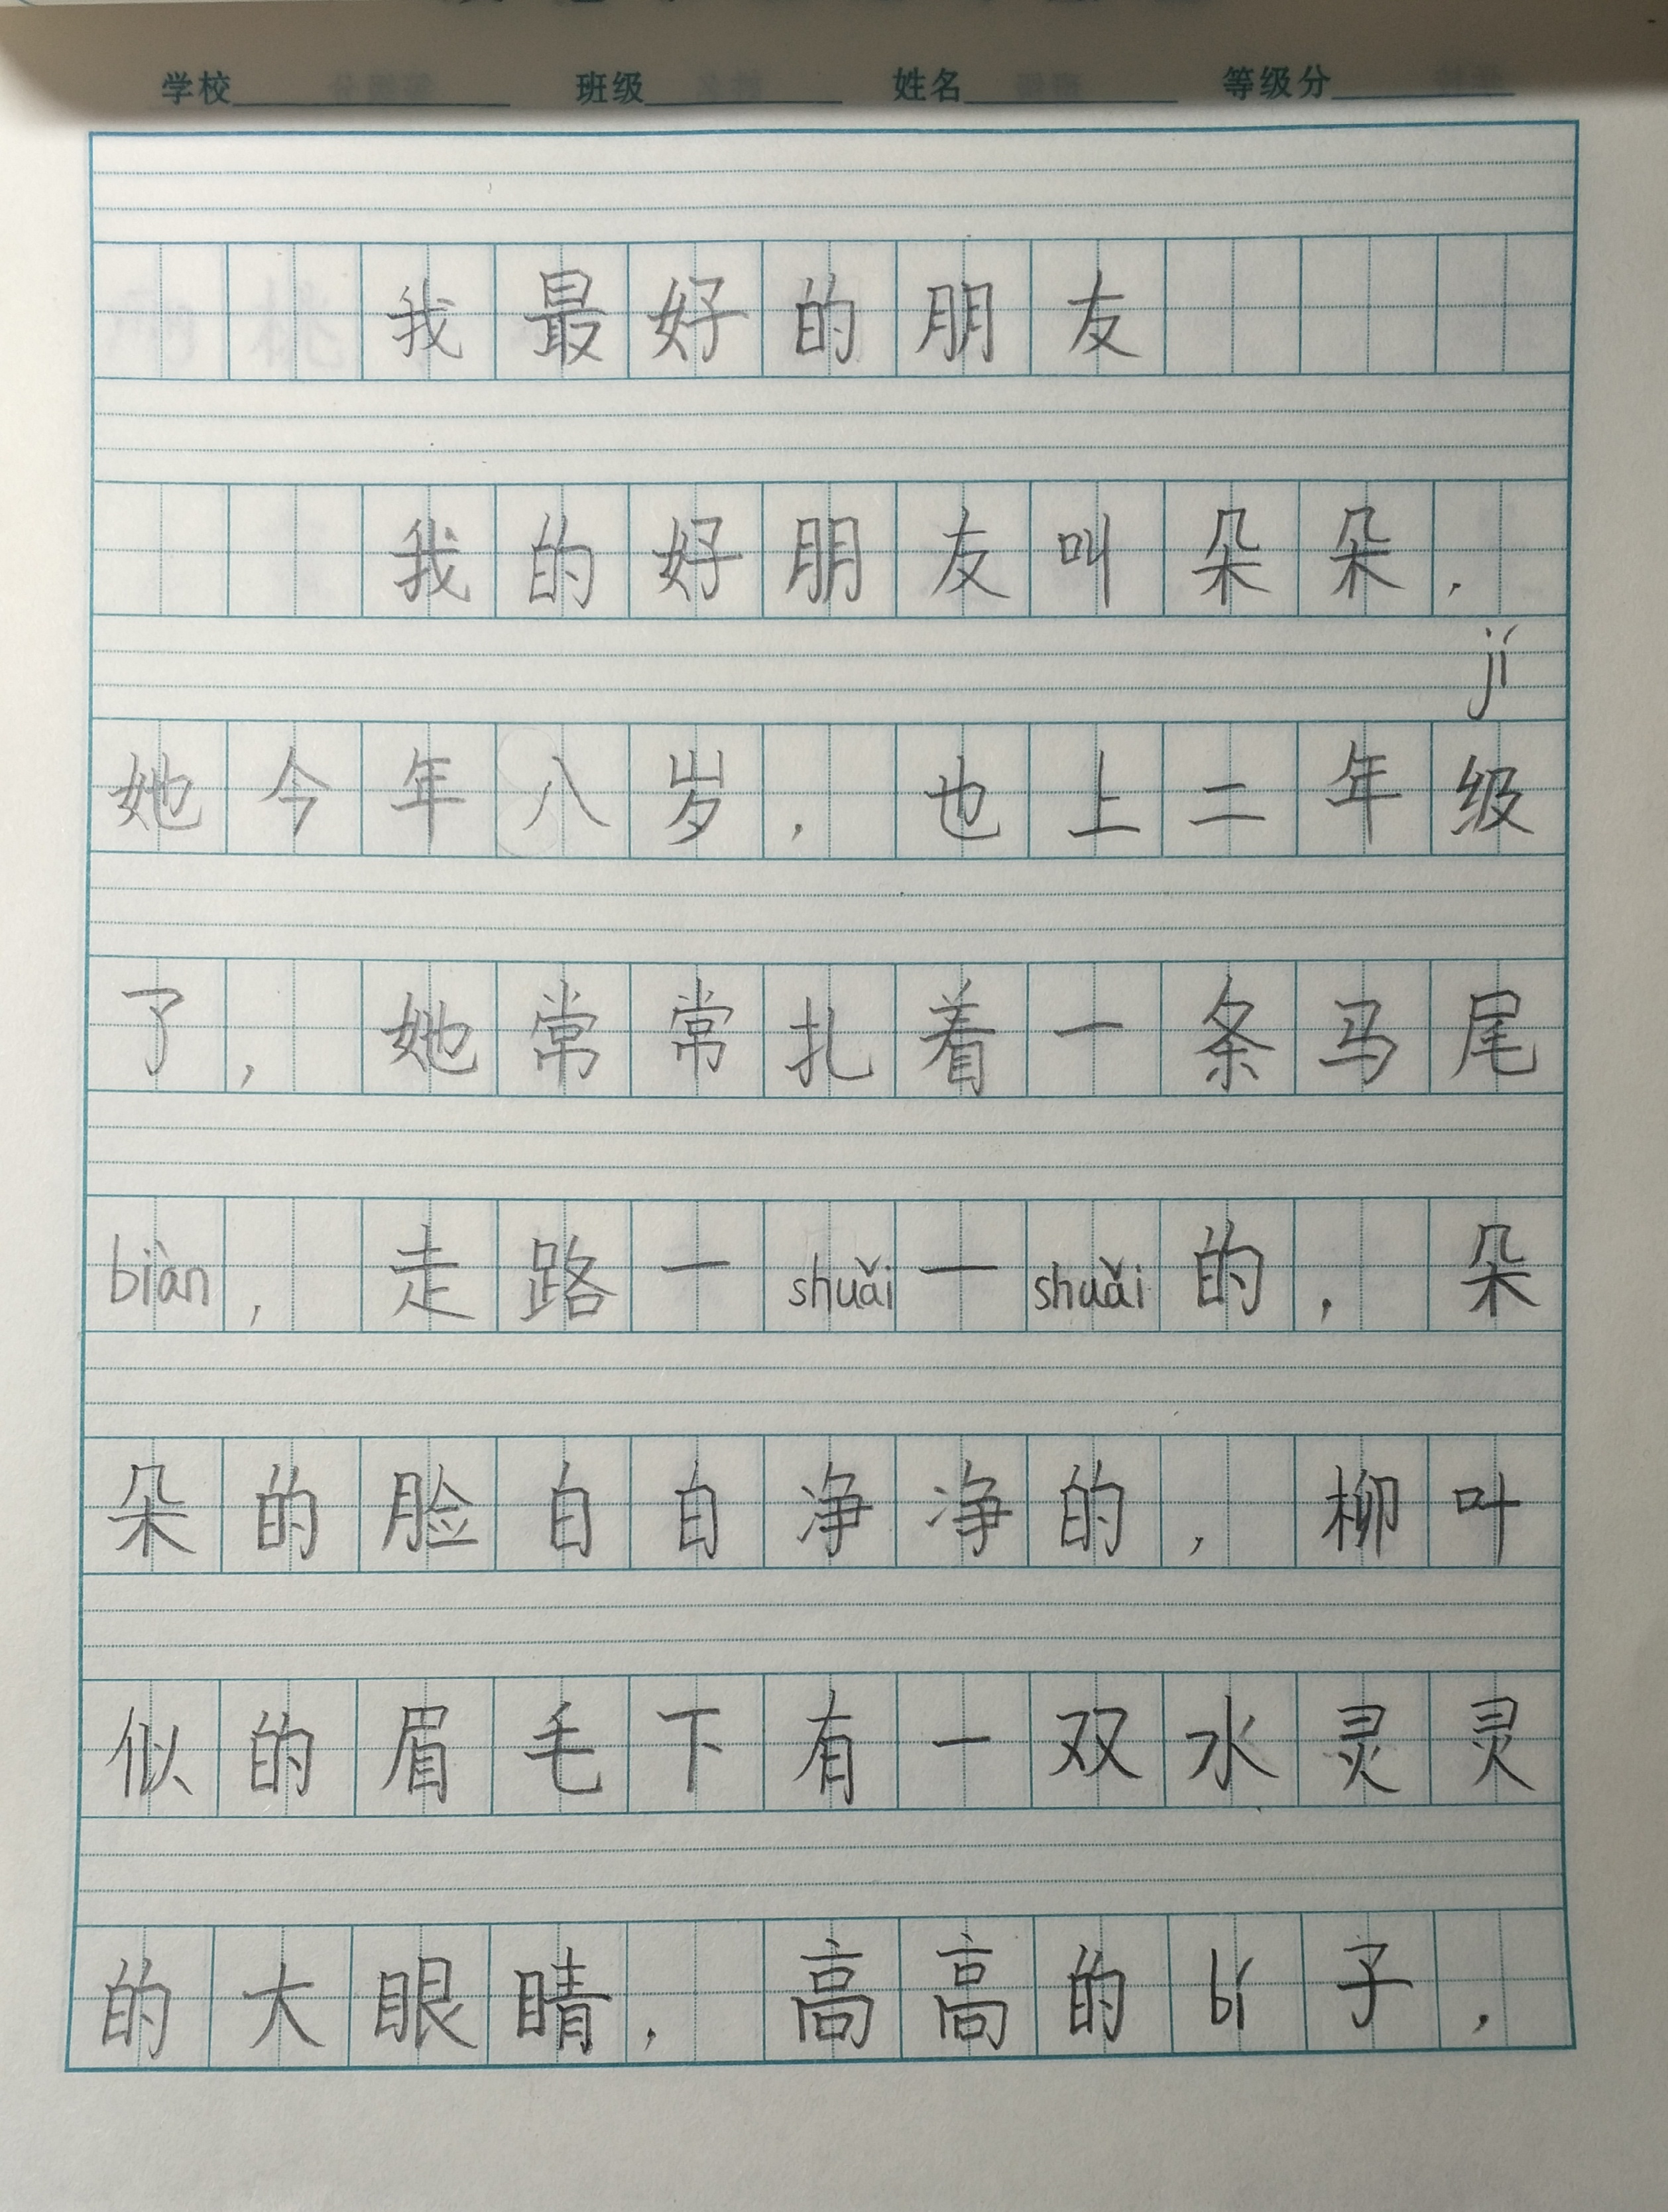 学校 班级 姓名 等级分
我最好的朋友
我的好朋友叫朵朵，
jí
她今年八岁，也上二年级
了，她常常扎着一条马尾
biàn，走路一shuǎi一shuǎi的，朵
朵的脸白白净净的，柳叶
似的眉毛下有一双水灵灵
的大眼睛，高高的bí子，